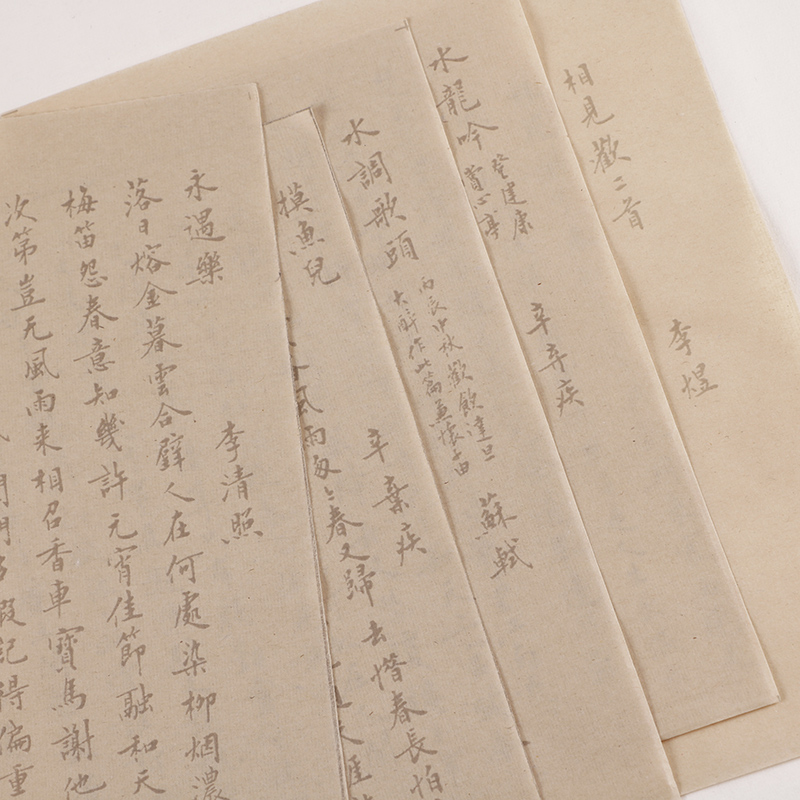 相見歡二首
李煜
水龍吟
登建康
賞心亭
辛弃疾
水調歌頭
丙辰中秋歡飲達旦
大醉作此篇兼懷子由
蘇軾
摸魚兒
辛棄疾
風雨匆〻春又歸去惜春長怕
天涯
永遇樂
李清照
落日熔金暮雲合璧人在何處染柳烟濃
梅笛怨春意知幾許元宵佳節融和天
次第豈无風雨来相召香車寶馬謝他
閨門多暇記得偏重